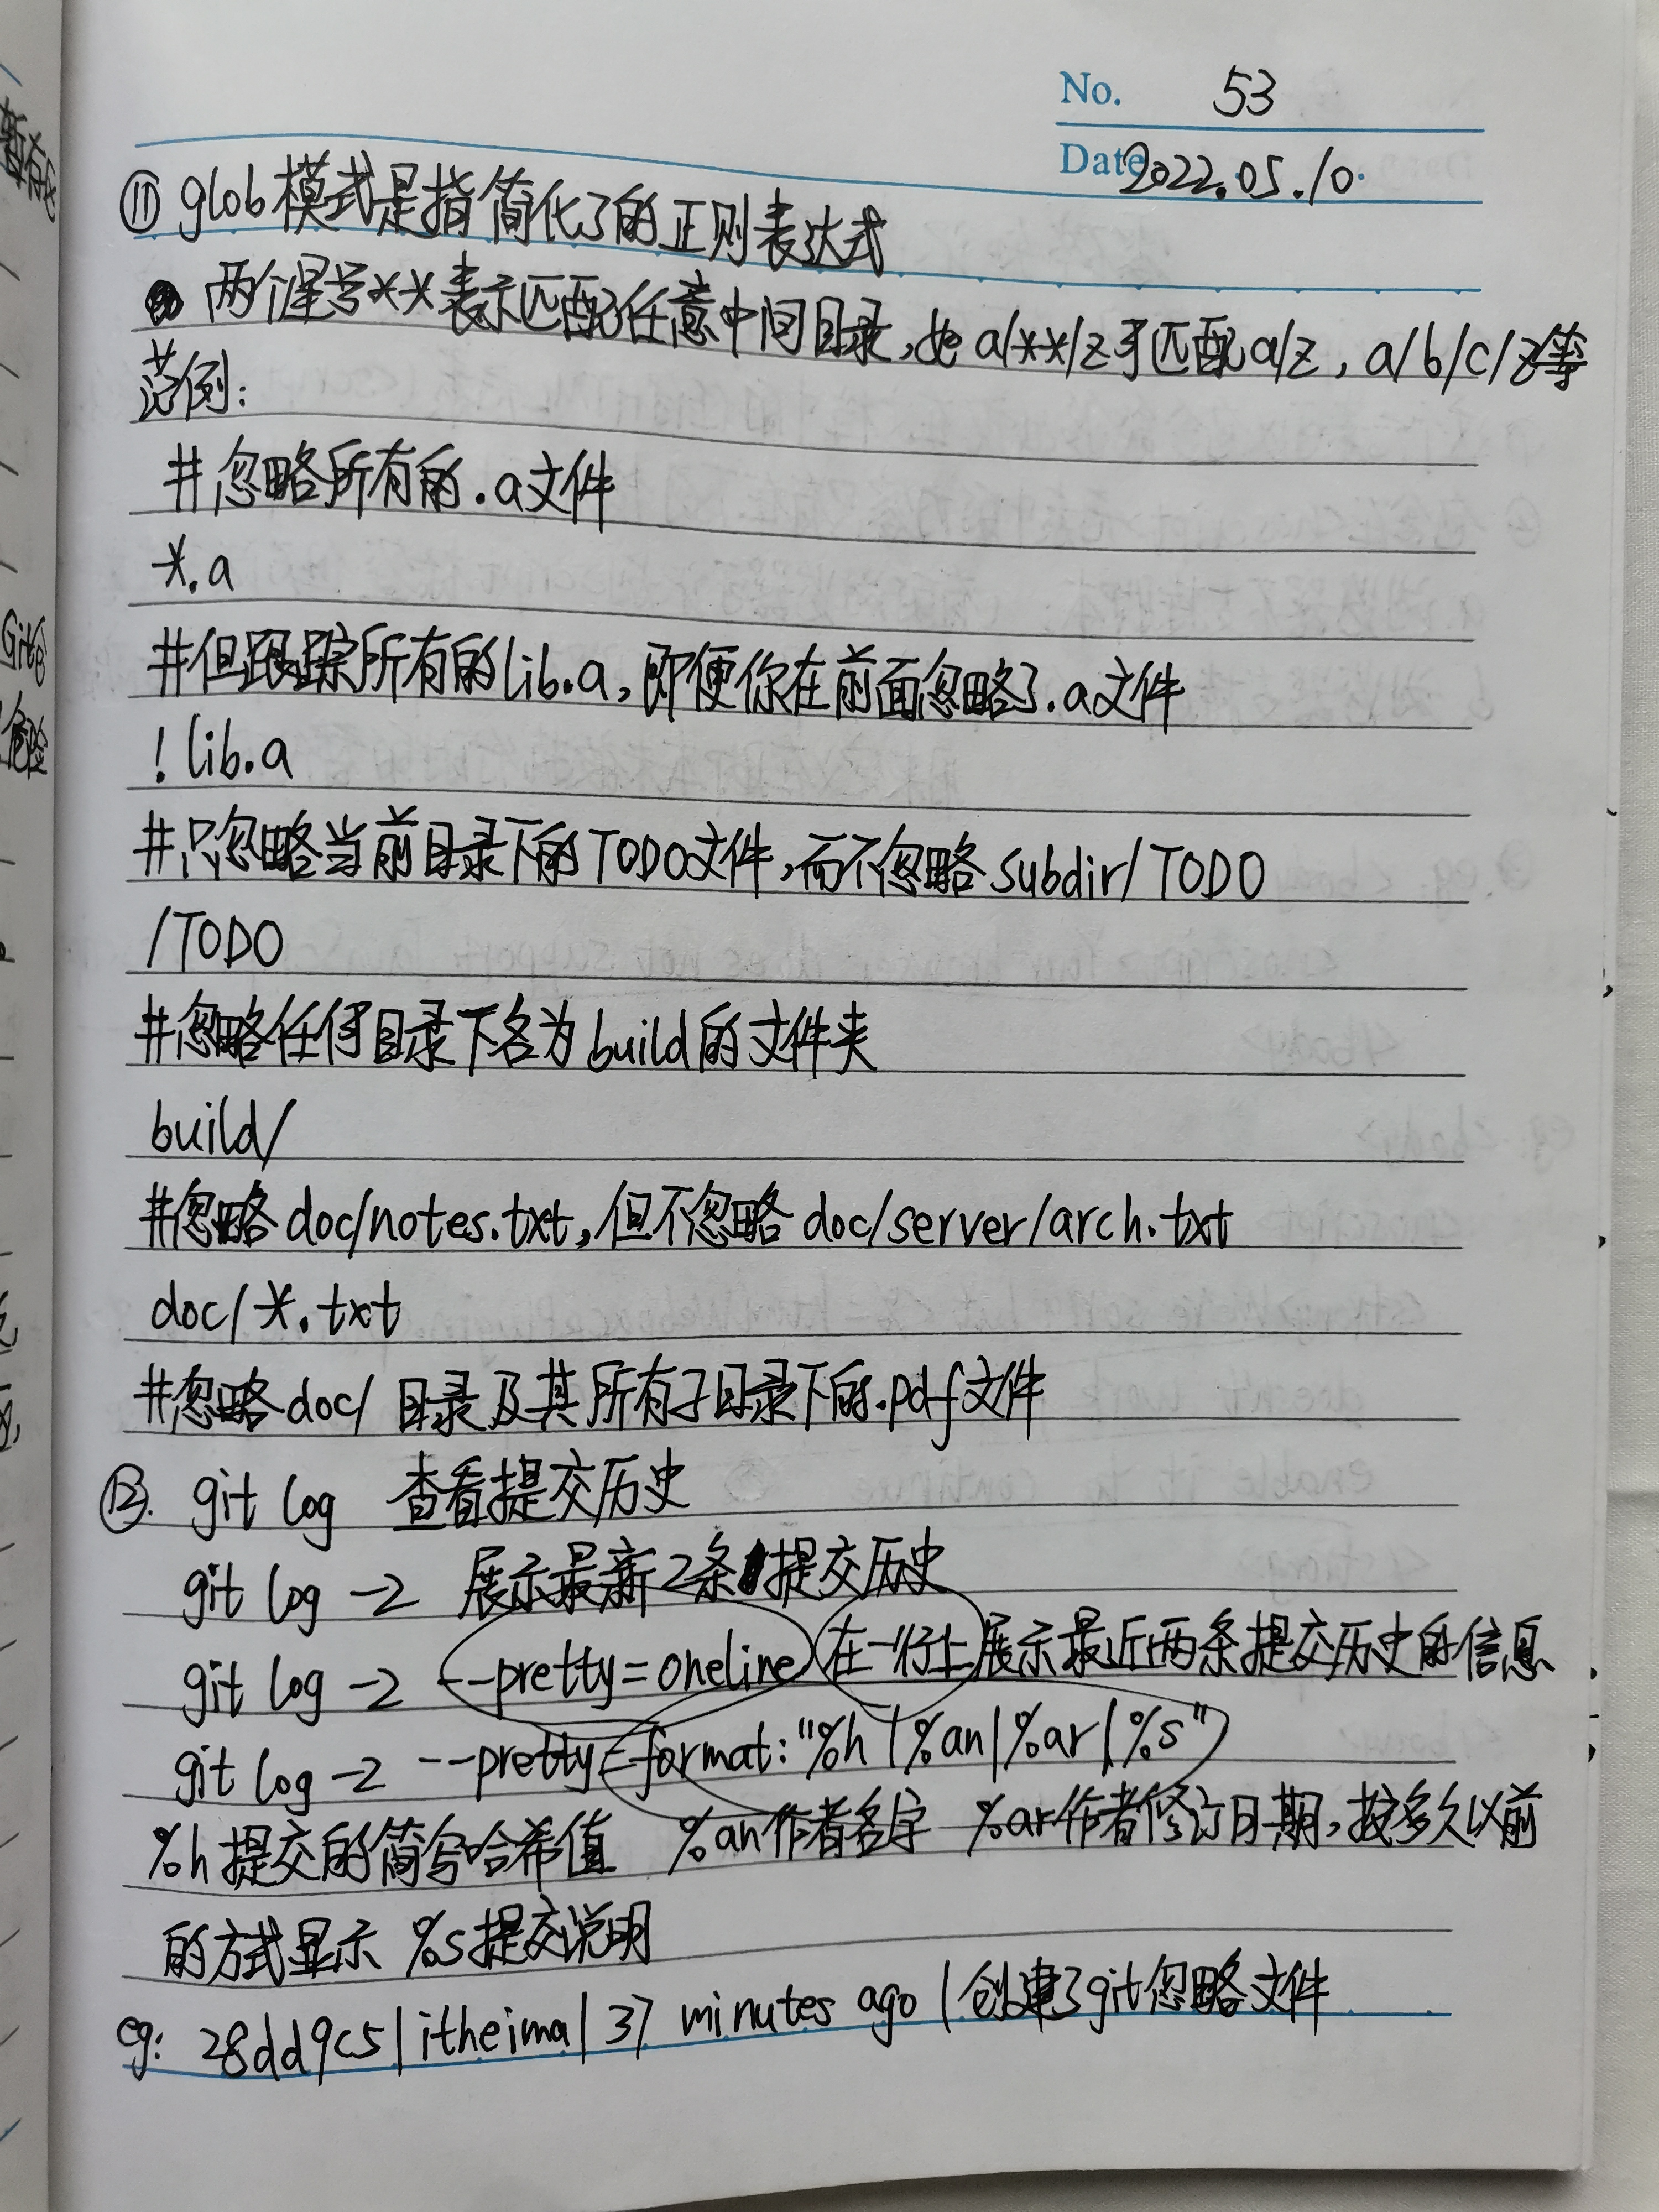 No. 53
Date 2022.05.10.
⑪ glob模式是指简化了的正则表达式
两个星号**表示匹配任意中间目录,如a/**/z可匹配a/z,a/b/c/z等
范例:
#忽略所有的.a文件
*.a
#但跟踪所有的lib.a,即便你在前面忽略了.a文件
!lib.a
#只忽略当前目录下的TODO文件,而不忽略subdir/TODO
/TODO
#忽略任何目录下名为build的文件夹
build/
#忽略doc/notes.txt,但不忽略doc/server/arch.txt
doc/*.txt
#忽略doc/ 目录及其所有子目录下的.pdf文件
⑫. git log 查看提交历史
git log -2 展示最新2条提交历史
git log -2 --pretty=oneline 在一行上展示最近两条提交历史的信息
git log -2 --pretty=format:"%h|%an|%ar|%s"
%h提交的简写哈希值 %an作者名字 %ar作者修订日期,按多久以前
的方式显示 %s提交说明
eg: 28dd9c5|itheima|37 minutes ago|创建了git忽略文件